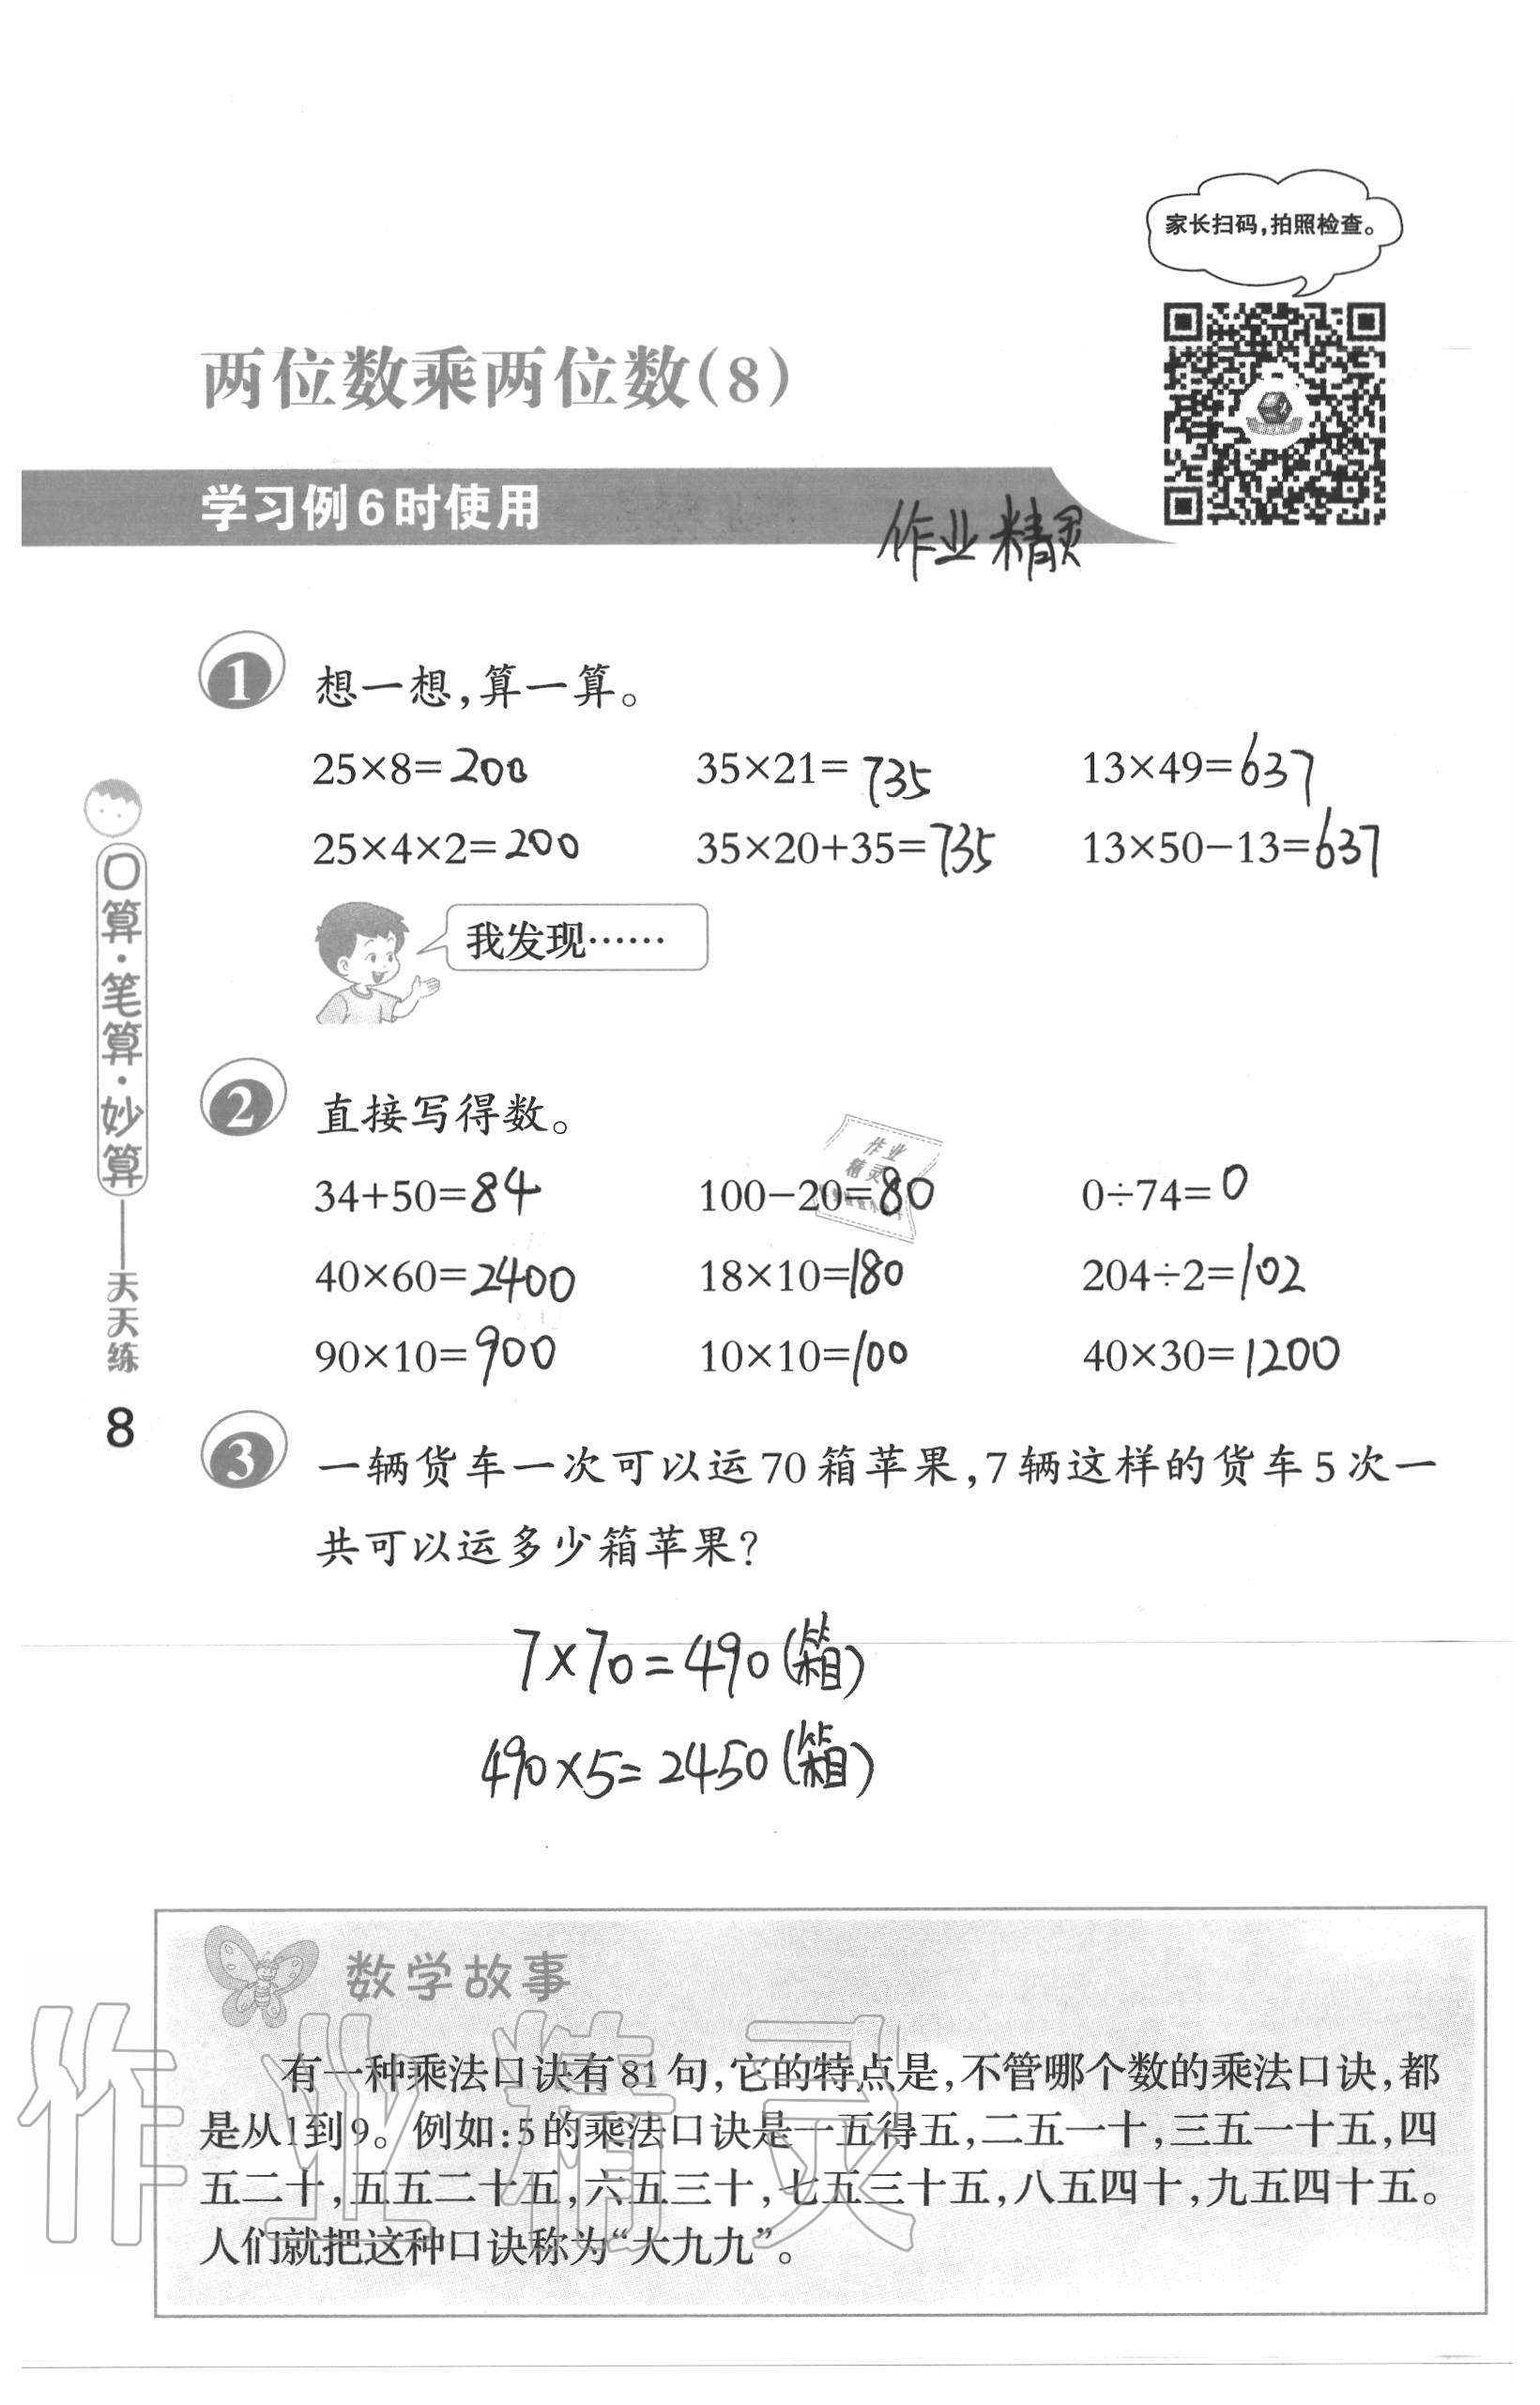 家长扫码，拍照检查。
两位数乘两位数(8)
学习例6时使用
作业精灵
1 想一想，算一算。
25×8=200 35×21=735 13×49=637
25×4×2=200 35×20+35=735 13×50-13=637
我发现……
2 直接写得数。
作业
精灵
34+50=84 100-20=80 0÷74=0
40×60=2400 18×10=180 204÷2=102
90×10=900 10×10=100 40×30=1200
3 一辆货车一次可以运70箱苹果，7辆这样的货车5次一
共可以运多少箱苹果？
7×70=490(箱)
490×5=2450(箱)
口算·笔算·妙算——天天练
8
数学故事
有一种乘法口诀有81句，它的特点是，不管哪个数的乘法口诀，都
是从1到9。例如：5的乘法口诀是一五得五，二五一十，三五一十五，四
五二十，五五二十五，六五三十，七五三十五，八五四十，九五四十五。
人们就把这种口诀称为“大九九”。
作业精灵